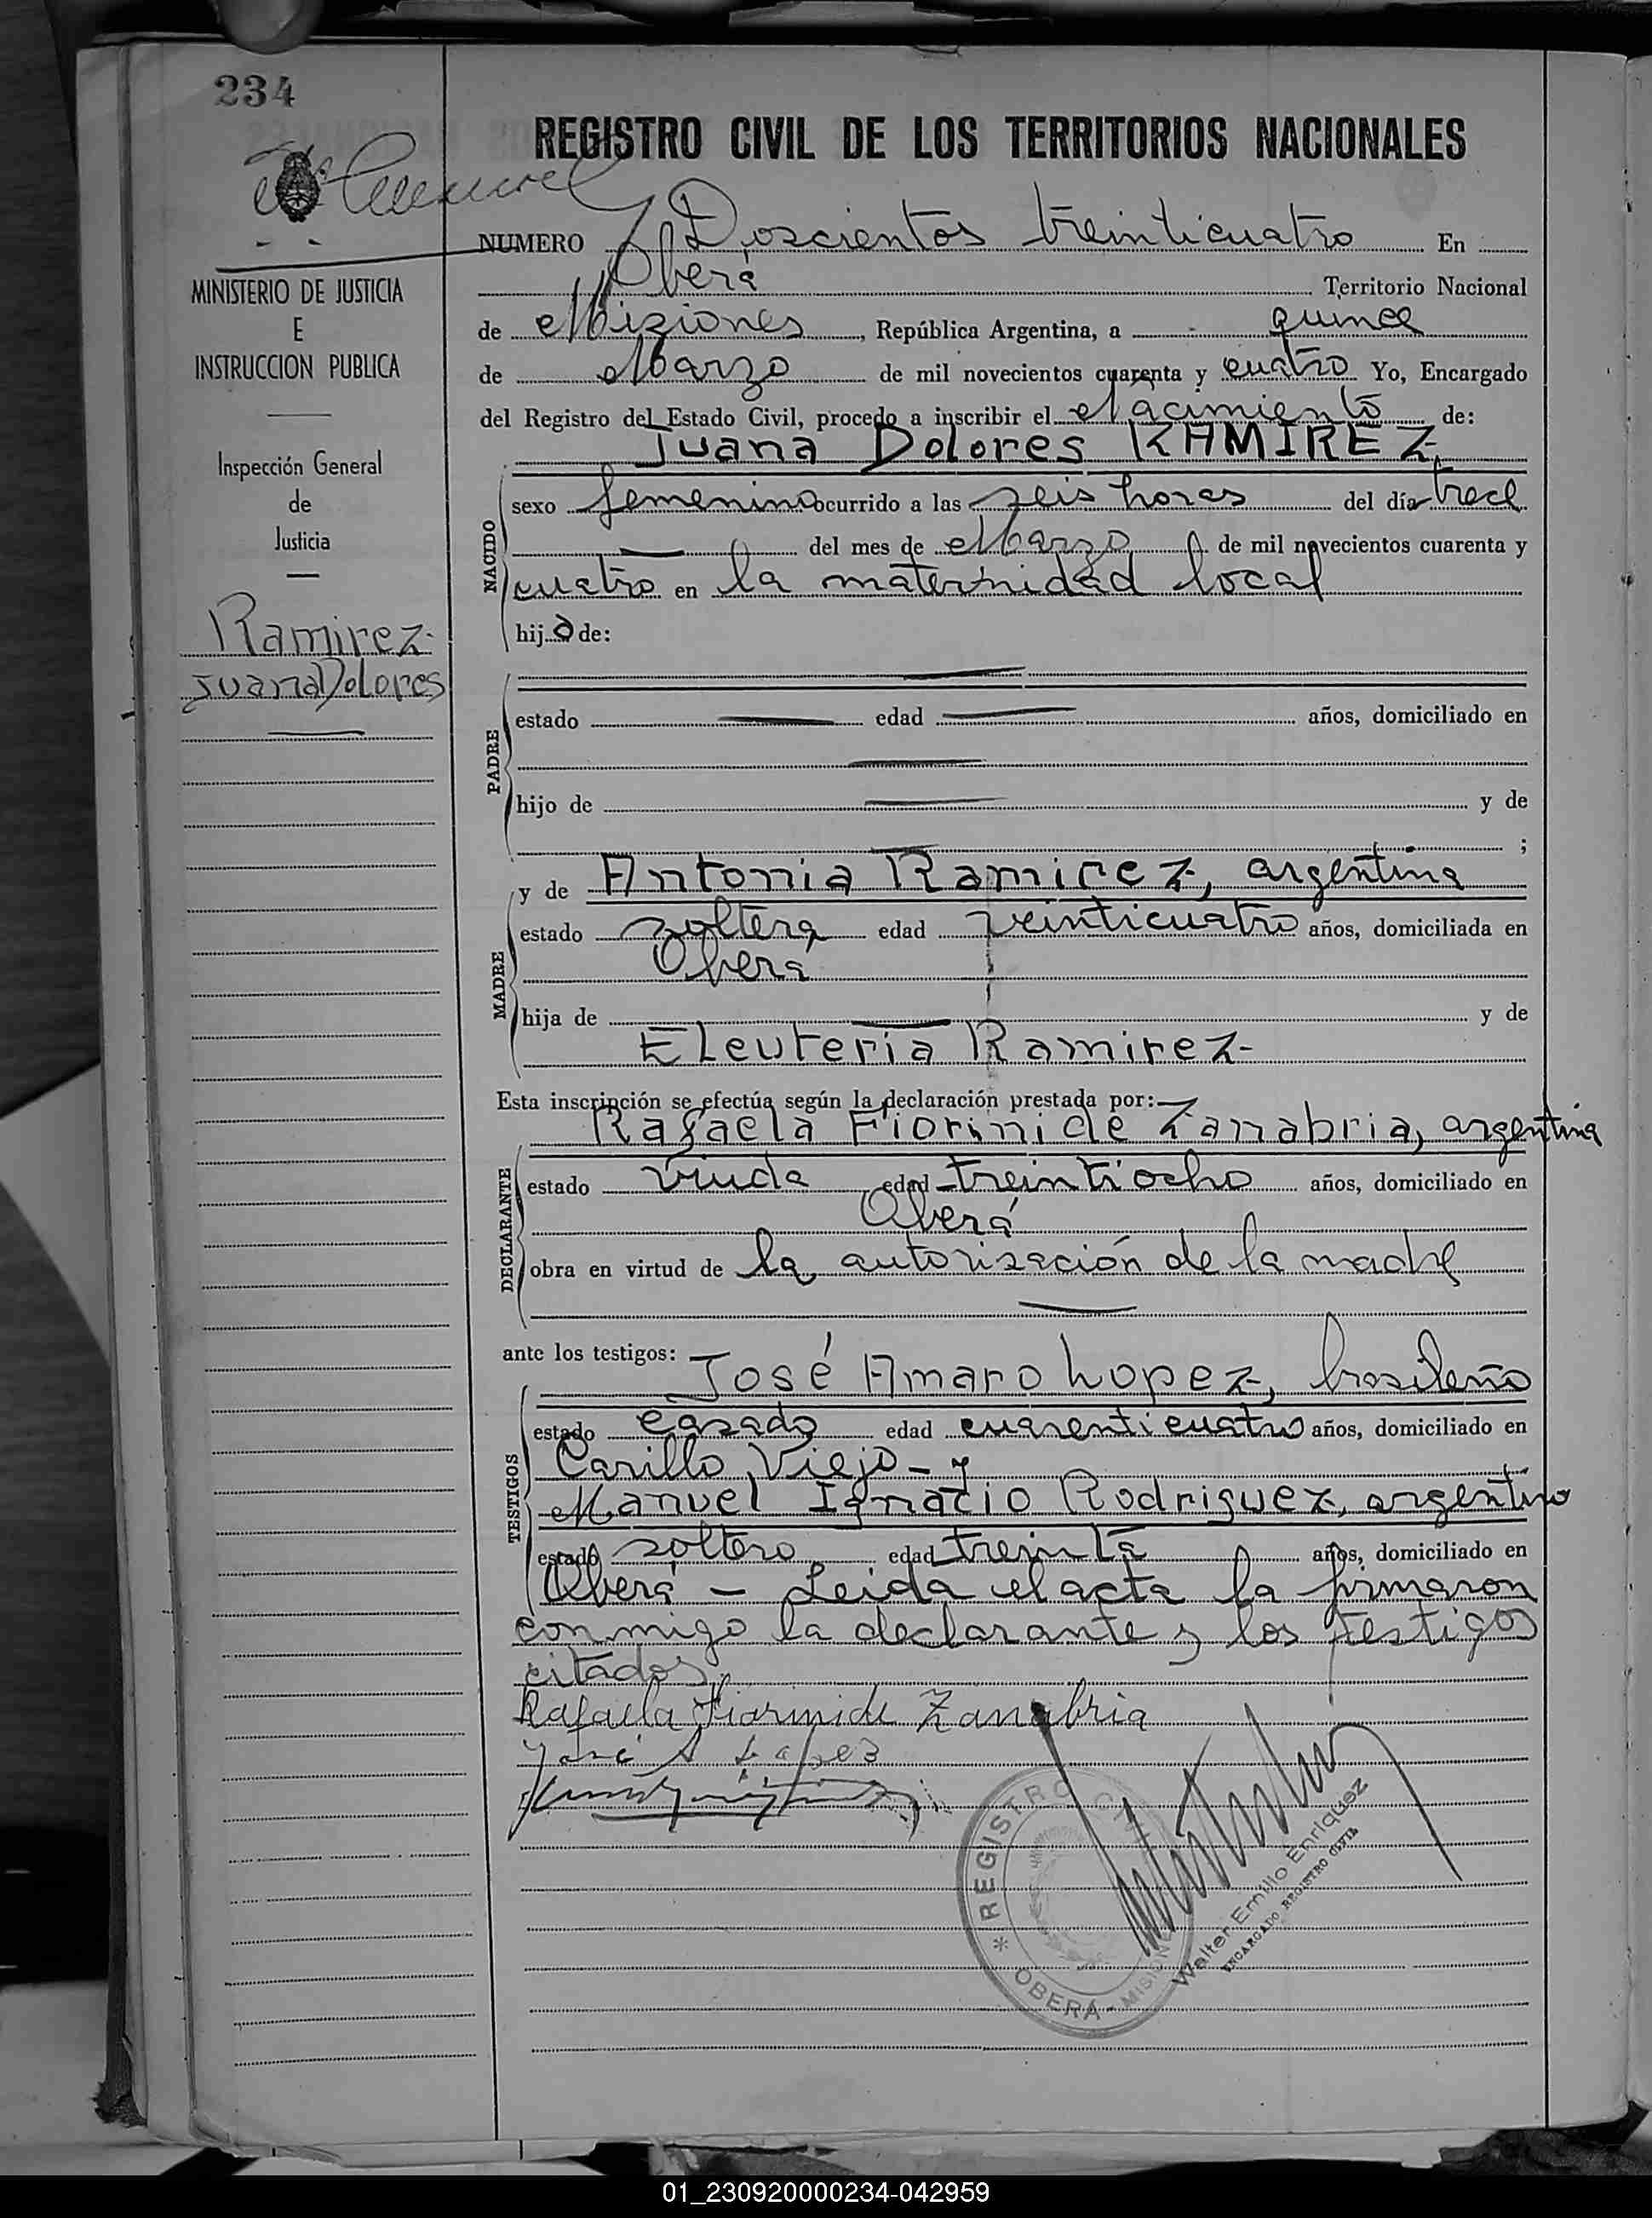 234
REGISTRO CIVIL DE LOS TERRITORIOS NACIONALES
NUMERO Doscientos treinticuatro En
Oberá Territorio Nacional
de Misiones, República Argentina, a quince
de Marzo de mil novecientos cuarenta y cuatro Yo, Encargado
del Registro del Estado Civil, procedo a inscribir el Nacimiento de:
Juana Dolores RAMIREZ
NACIDO
sexo femenino ocurrido a las seis horas del día trece
del mes de Marzo de mil novecientos cuarenta y
cuatro en la maternidad local
hija de:
MINISTERIO DE JUSTICIA
E
INSTRUCCION PUBLICA
Inspección General
de
Justicia
Ramirez
Juana Dolores
PADRE
estado edad años, domiciliado en
hijo de y de
;
MADRE
y de Antonia Ramirez, argentina
estado soltera edad veinticuatro años, domiciliada en
Oberá
hija de y de
Eleuteria Ramirez-
Esta inscripción se efectúa según la declaración prestada por:
DECLARANTE
Rafaela Fiorini de Zanabria, argentina
estado viuda edad treintiocho años, domiciliado en
Oberá
obra en virtud de la autorización de la madre
ante los testigos: José Amaro Lopez, brasileño
TESTIGOS
estado casado edad cuarenticuatro años, domiciliado en
Carillo Viejo - y
Manuel Ignacio Rodriguez, argentino
estado soltero edad treinta años, domiciliado en
Oberá - Leida el acta la firmaron
conmigo la declarante y los testigos
citados.
Rafaela Fiorini de Zanabria
José A Lopez
* REGISTRO CIVIL
OBERA - MISIONES
Walter Emilio Enriquez
ENCARGADO REGISTRO CIVIL
01_230920000234-042959